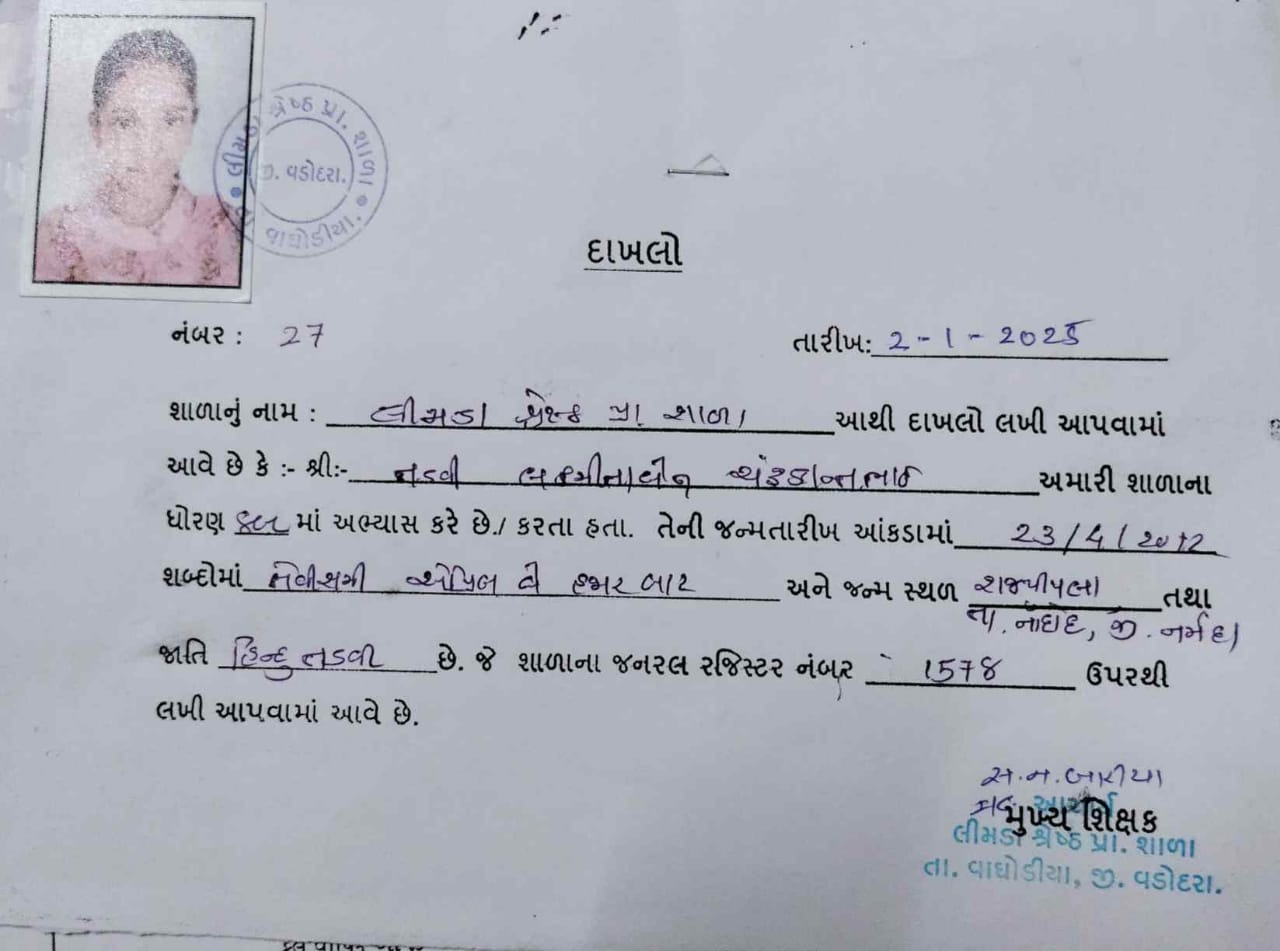 લીમડા શ્રેષ્ઠ પ્રા. શાળા
જી. વડોદરા.
વાઘોડીયા.
દાખલો
નંબર : 27
તારીખ: 2-1-2025
શાળાનું નામ : લીમડા શ્રેષ્ઠ પ્રા શાળા આથી દાખલો લખી આપવામાં
આવે છે કે :- શ્રી:- તડવી અમારી શાળાના
ધોરણ માં અભ્યાસ કરે છે./ કરતા હતા. તેની જન્મતારીખ આંકડામાં 23/4/2012
શબ્દોમાં ત્રેવીસમી એપ્રિલ બે હજાર બાર અને જન્મ સ્થળ રાજપીપલા તથા
તા. નાંદોદ, જી. નર્મદા
જાતિ હિન્દુ તડવી છે. જે શાળાના જનરલ રજિસ્ટર નંબર 1578 ઉપરથી
લખી આપવામાં આવે છે.
સ.ન.બારીયા
આચાર્ય
મુખ્ય શિક્ષક
લીમડા શ્રેષ્ઠ પ્રા. શાળા
તા. વાઘોડીયા, જી. વડોદરા.